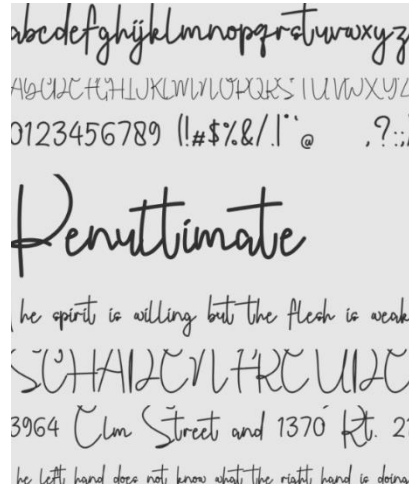 abcdefghijklmnopqrstuvwxyz
ABCDEFGHIJKLMNOPQRSTUVWXYZ
0123456789 (!#$%&/.|¨`@ ,?:;
Penultimate
The spirit is willing but the flesh is weak
SCHADENFREUDE
3964 Elm Street and 1370 Rt. 21
The left hand does not know what the right hand is doing